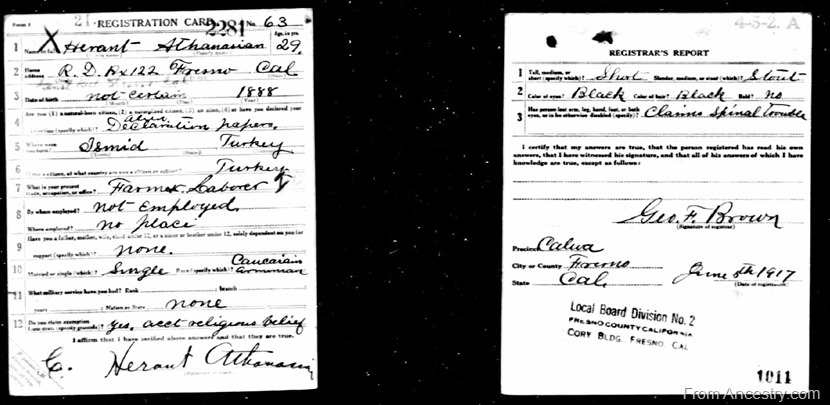 Form 1
REGISTRATION CARD 2281 No. 63
1 Herant Athanasian Age, in yrs. 29
2 Home address R.D. Bx 122 Fresno Cal
3 Date of birth not certain 1888
Are you (1) a natural-born citizen, (2) a naturalized citizen, (3) an alien, (4) or have you declared your
4 (specify which)? Alien Declaration papers.
5 Where were you born? Ismid Turkey
6 If not a citizen, of what country are you a citizen or subject? Turkey
7 What is your present trade, occupation, or office? Farmer. Laborer
8 By whom employed? not Employed.
Where employed? no place
Have you a father, mother, wife, child under 12, or a sister or brother under 12, solely dependent on you for
9 support (specify which)? none.
10 Married or single (which)? Single Race (specify which)? Caucaian
11 What military service have you had? Rank branch
years Nation or State none
12 Do you claim exemption from draft (specify grounds)? Yes, acct religious belief
I affirm that I have verified above answers and that they are true.
Herant Athanasian
4-3-2. A
REGISTRAR'S REPORT
1 Tall, medium, or short (specify which)? Short Slender, medium, or stout (which)? Stout
2 Color of eyes? Black Color of hair? Black Bald? No
3 Has person lost arm, leg, hand, foot, or both eyes, or is he otherwise disabled (specify)? Claims Spinal trouble
I certify that my answers are true, that the person registered has read his own
answers, that I have witnessed his signature, and that all of his answers of which I have
knowledge are true, except as follows:
Geo. F. Brown
(Signature of registrar)
Precinct Calwa
City or County Fresno
State Cal. June 5th 1917
(Date of registration)
Local Board Division No. 2
FRESNO COUNTY CALIFORNIA
CORY BLDG. FRESNO, CAL
1011
From Ancestry.com